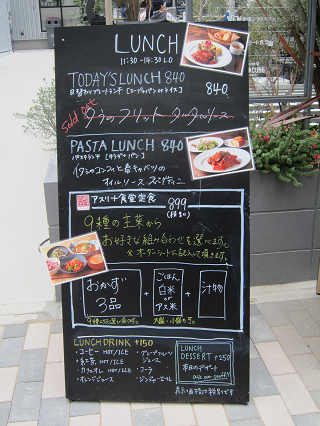 LUNCH
11:30 - 14:30 LO
TODAY'S LUNCH 840
日替わりプレートランチ [スープ&パン or ライス] 840
Sold out
タラのフリット タルタルソース
PASTA LUNCH 840
パスタランチ [サラダ+パン]
イワシのコンフィと春キャベツの
オイルソース スパゲティーニ
アスリート食堂定食 899
9種の主菜から
お好きな組み合わせを選べます。
※オーダーシートに記入して頂きます。
おかず 3品 + ごはん 白米 or アス米 + 汁物
LUNCH DRINK +150
・コーヒー HOT/ICE
・紅茶 HOT/ICE
・カフェオレ HOT/ICE
・オレンジジュース
・グレープフルーツジュース
・コーラ
・ジンジャーエール
LUNCH
DESSERT +250
本日のデザート
Ask our staff!!
表示価格は税別です